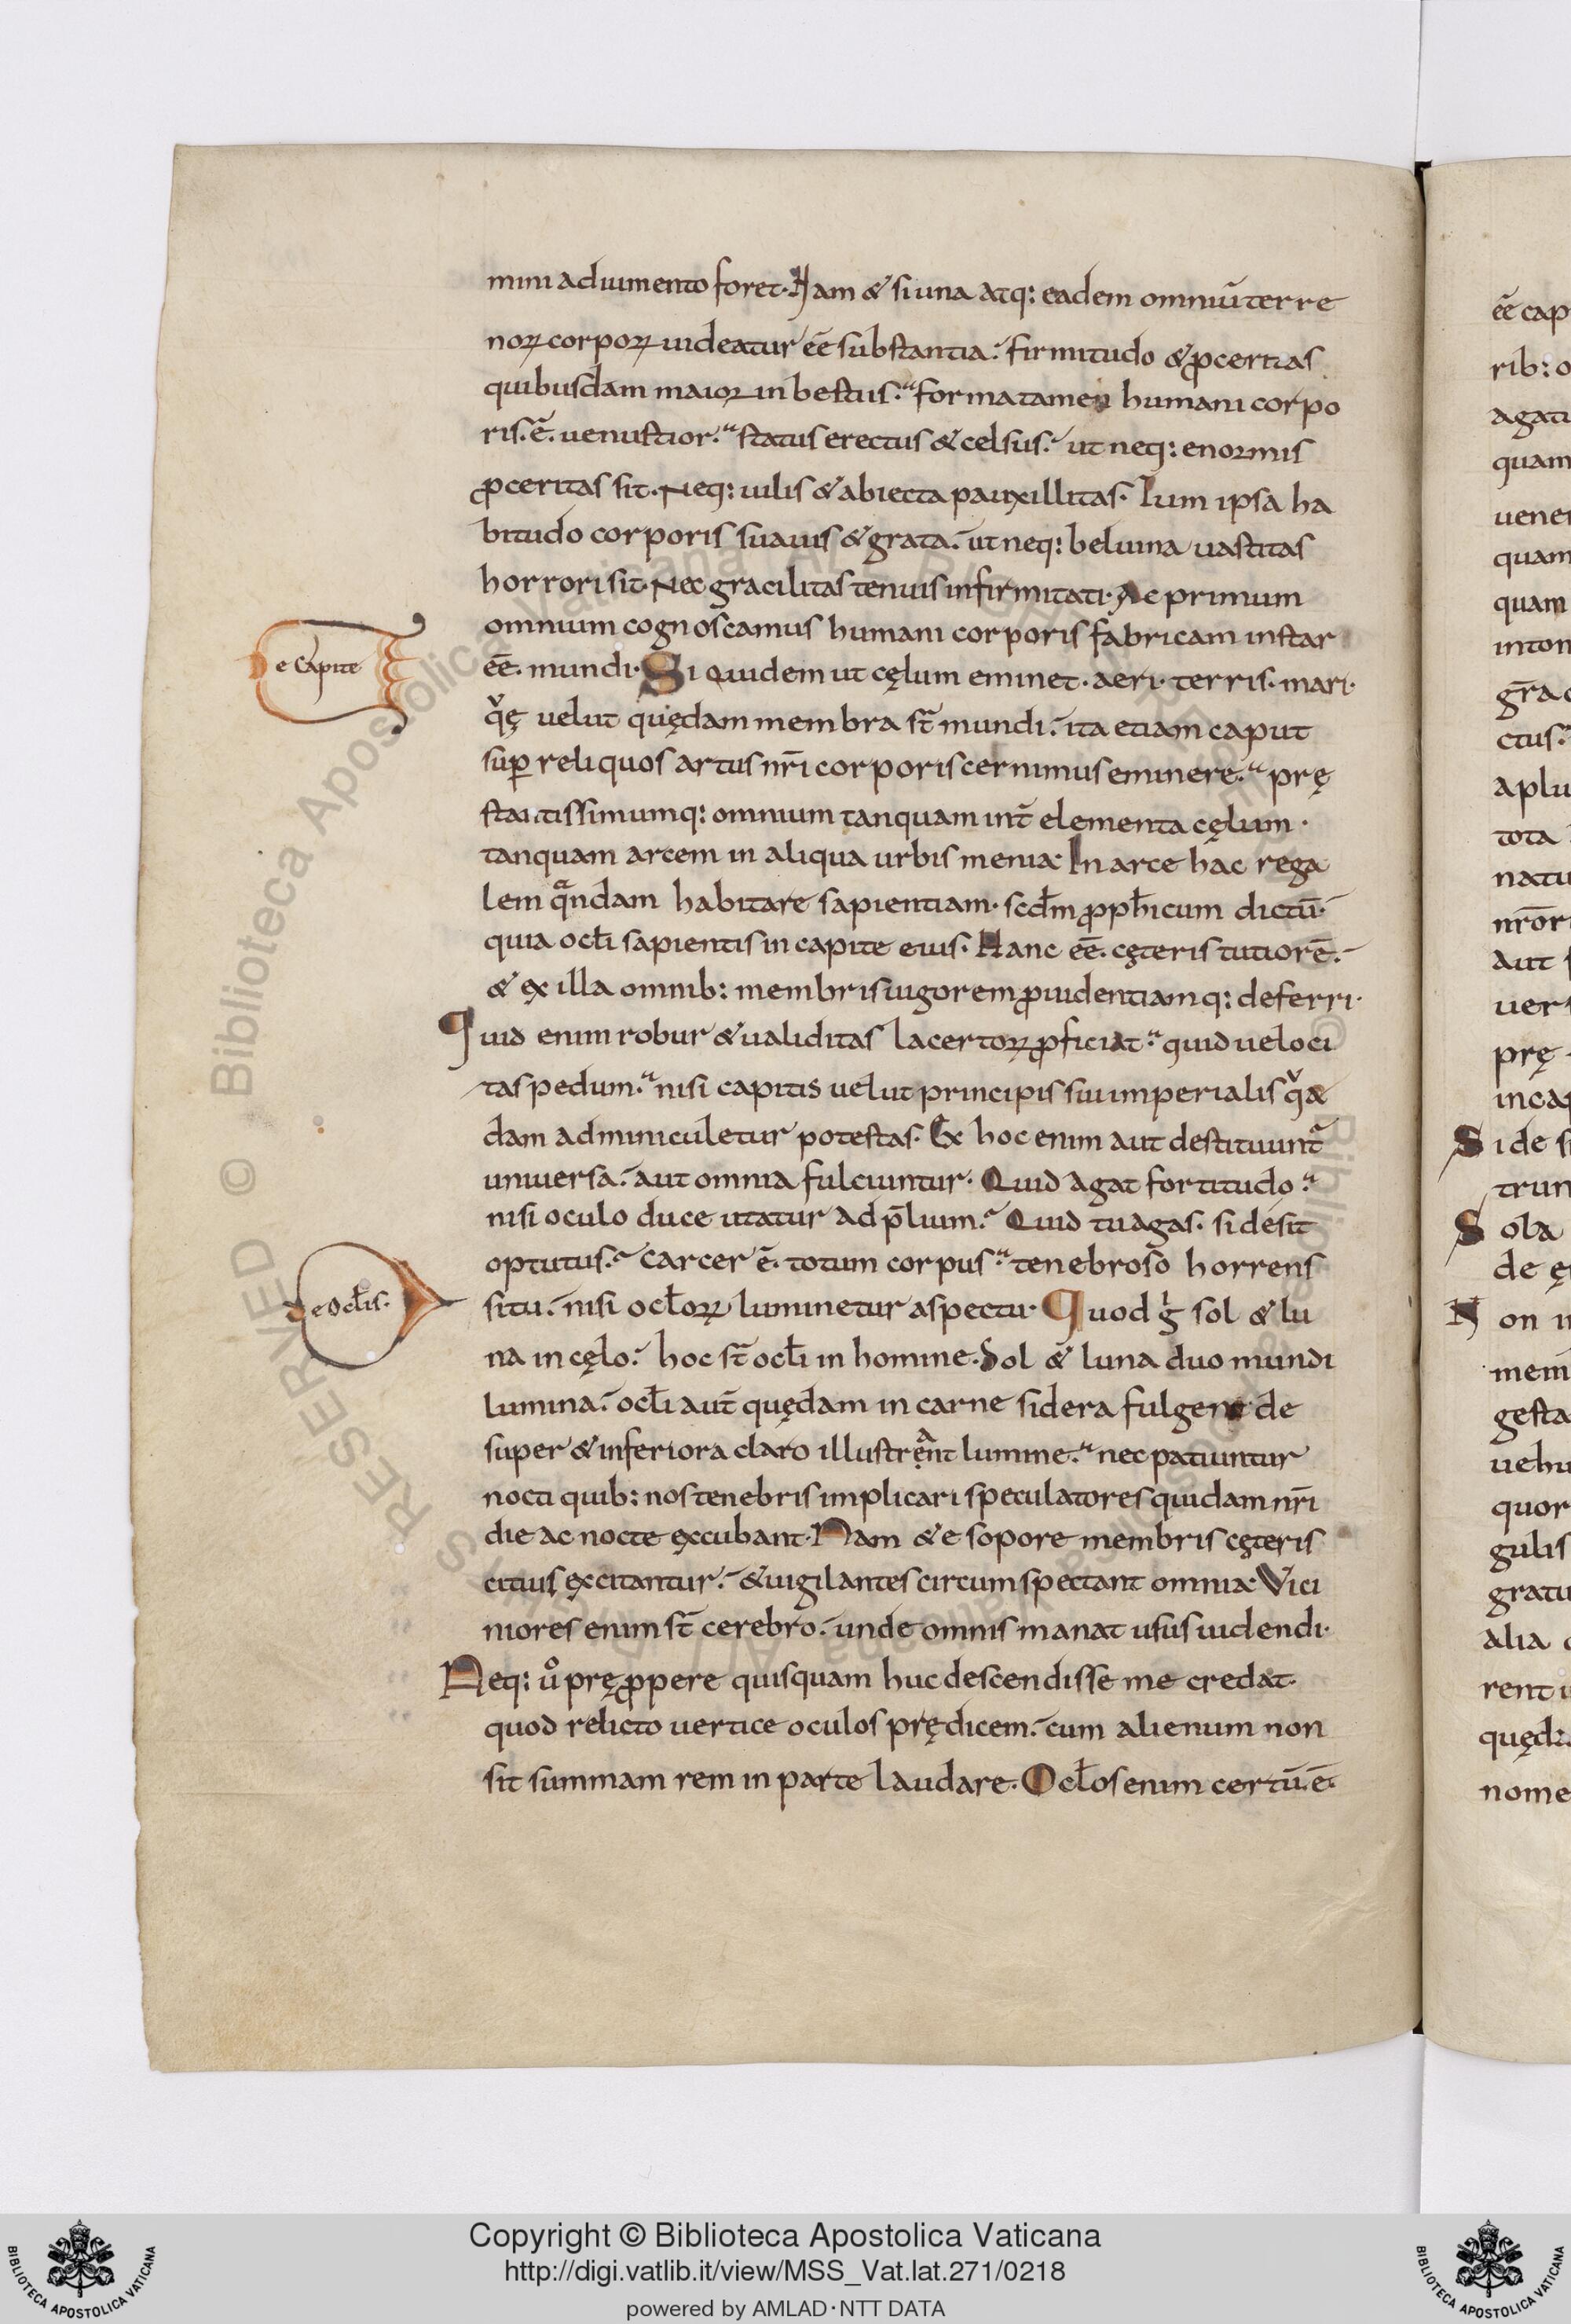 mini adiumento foret. Nam & si una atq: eadem omniũ terre
noꝝ corpoꝝ uideatur eē substantia. firmitudo & ꝓceritas
quibusdam maior in bestiis. forma tamen humani corpo
ris. ē. uenustior. status erectus & celsus. ut neq: enormis
ꝓceritas sit. Neq: uilis & abiecta pauxillitas. Tum ipsa ha
bitudo corporis suauis & grata. ut neq: beluina uastitas
horrori sit. Nec gracilitas tenuis infirmitati. Ac primum
omnium cognoscamus humani corporis fabricam instar
De Capite
eē. mundi. Si quidem ut cęlum eminet. aeri. terris. mari.
q̌ę uelut quędam membra st̄ mundi. ita etiam caput
suꝑ reliquos artus nr̄i corporis cernimus eminere. prę
stantissimumq: omnium tanquam int̄ elementa cęlum.
tanquam arcem in aliqua urbis menia. In arce hac rega
lem qͣndam habitare sapientiam. scd̄m ꝓph̄icum dictũ.
quia ocl̄i sapientis in capite eius. Hanc eē. cęteris tutiorē.
& ex illa omnib: membris uigorem ꝓuidentiamq: deferri.
Quid enim robur & ualiditas lacertoꝝ ꝓficiat. quid ueloci
tas pedum. nisi capitis uelut principis sui imperialis q̌&#x64;
dam adminiculetur potestas. Ex hoc enim aut destituunt̄
uniuersa. aut omnia fulciuntur. Quid agat fortitudo.
nisi oculo duce utatur ad p̄lium. Quid tu agas. si desit
optutus. Carcer ē. totum corpus. tenebroso horrens
De Ocl̄is.
situ. nisi ocl̄oꝝ luminetur aspectu. Quod g̍ sol & lu
na in cęlo. hoc st̄ ocl̄i in homine. Sol & luna duo mundi
lumina. ocl̄i aut̄ quędam in carne sidera fulgent de
super & inferiora claro illustrent lumine. nec patiuntur
nocti quib: nos tenebris implicari speculatores quidam nr̄i
die ac nocte excubant. Nam & e sopore membris cęteris
citius excitantur. & uigilantes circumspectant omnia. Vici
niores enim st̄ cerebro. unde omnis manat usus uidendi.
Neq: ů pręꝓpere quisquam huc descendisse me credat.
quod relicto uertice oculos prędicem. cum alienum non
sit summam rem in parte laudare. Ocl̄os enim certũ. ē.
eē cap
rib: o
agati
quam
uene
quam
quam
inton
gr̄a
ctus.
aplu
tota
natu
nr̄or
aut
uers
prę
incap
Si de s
trun
Sola
de
Non
mem
gesta
uehi
quor
gulis
gratu
alia
rent
quęd
nome
RESERVED © Biblioteca Apostolica Vaticana
Copyright © Biblioteca Apostolica Vaticana
http://digi.vatlib.it/view/MSS_Vat.lat.271/0218
powered by AMLAD·NTT DATA
BIBLIOTECA APOSTOLICA VATICANA
BIBLIOTECA APOSTOLICA VATICANA